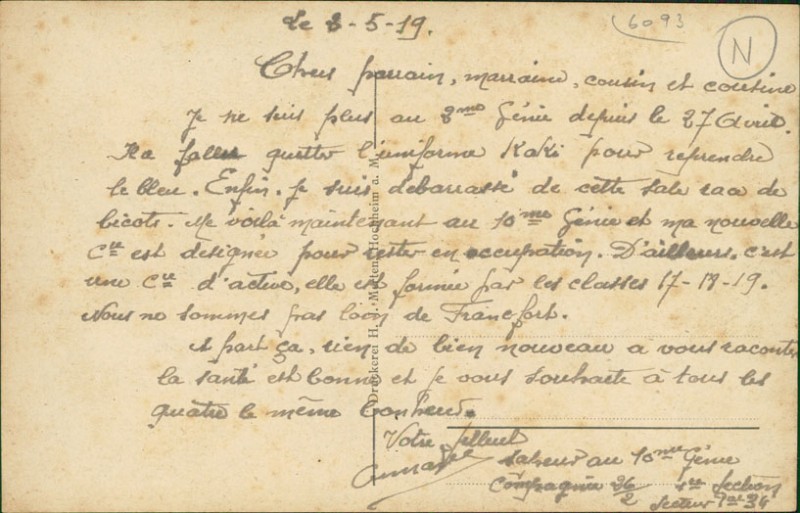 Le 8-5-19.
6093
N
Chers parrain, marraine, cousin et cousine
Je ne suis plus au 8me Génie depuis le 27 Avril.
Il a fallu quitter l'uniforme Kaki pour reprendre
le bleu. Enfin. je suis débarrassé de cette sale race de
bicots. Me voilà maintenant au 10me Génie et ma nouvelle
Cie est designée pour rester en occupation. D'ailleurs. c'est
une Cie d'active, elle est formée par les classes 17-18-19.
Nous ne sommes pas loin de Francfort.
A part ça, rien de bien nouveau a vous raconter
la santé est bonne et je vous souhaite à tous les
quatre le même bonheur.
Votre filleul
sapeur au 10me Génie
Compagnie 26/2 1re Section
Secteur Pal 34
Druckerei H. J. Mertens, Hochheim a. M.